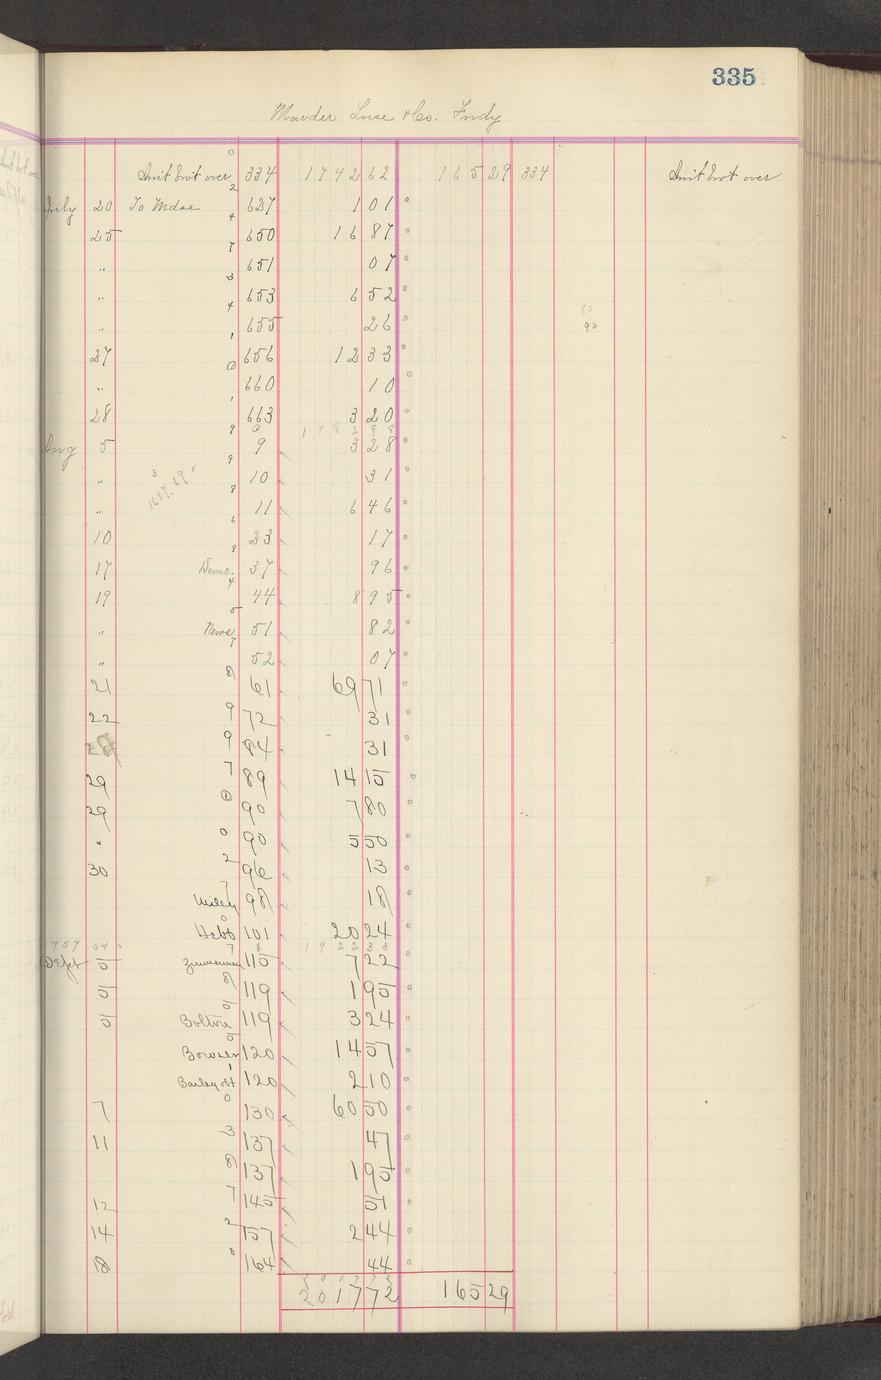 335
Marder Luse & Co. Fndy
0
Amt brot over 334 1742 62 165 29 334 Amt brot over
2
July 20 To Mdse 627 1 01
4
25 650 16 87
7
" 651 07
3
" 653 6 52
4
" 655 26
85
95
1
27 656 12 33
0
" 660 10
1
28 663 3 20
1782 98
9
Aug 5 9 3 28
9
" 10 31
3
1617.69 ✓
8
" 11 6 46
6
10 23 17
8
17 Demo. 37 96
4
19 44 8 95
5
" News 51 82
7
" 52 07
8
21 61 69 71
9
22 72 31
9
84 31
7
29 89 14 15
0
29 90 7 80
0
" 90 5 50
2
30 96 13
7
Wiley 98 18
0
Hebb 101 20 24
1757 04 8 1922 33
7
Sept 5 Zimmerman 115 7 22
8
5 119 1 95
5
5 Bolton 119 3 24
5
Bowser 120 14 57
1
Bailey 120 2 10
0
7 130 60 50
3
11 137 47
8
137 1 95
7
12 145 51
2
14 157 2 44
8
18 164 44
2017 72
2017 72 165 29